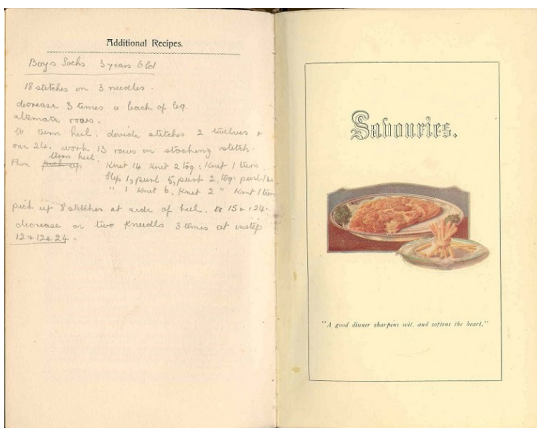 Additional Recipes.
Boys Socks 3 years Old
18 stitches on 3 needles.
decrease 3 times a back of leg
alternate rows.
to turn heel: devide stitches 2 twelves &
one 24. work 13 rows in stocking stitch.
then turn heel: Knit 14 Knit 2 tog: Knit 1 turn
Slip 1, purl 5, purl 2 tog: purl 1
" 1 Knit 6, Knit 2 " Knit 1 turn
pick up 8 stitches at side of heel. 15 + 24.
decrease on two Kneedls 3 times at instep
12 + 12 + 24.
Savouries.
"A good dinner sharpens wit, and softens the heart."